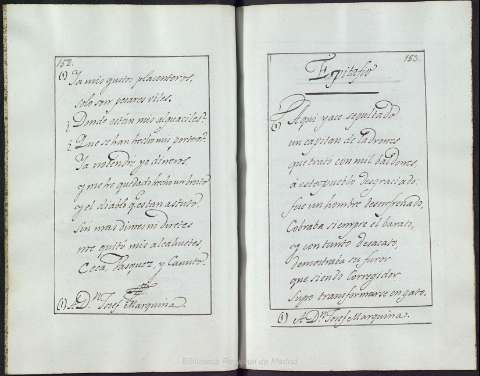 152.
(1) Ya mis gustos placenteros,
solo son pesares viles,
¿ Donde están mis alguaciles?
¿ Que se han hecho mis porteros?
Ya no tendre yo dineros
y me he quedado hecho un bruto
y el diablo que es tan astuto
sin mas dimes ni diretes
me quitó mis alcahuetes,
Coca, Vasquez, y Canuto.
(1) A D.n Josef Marquina.
153.
Epitafio
(1) Aqui yace sepultado
un capitan de ladrones
que trató con mil baldones
á este pueblo desgraciado:
fue un hombre desenfrenado,
Cobraba siempre el barato,
y con tanto desacato,
demostraba su furor
que siendo Corregidor
supo transformarse en gato.
(1) A D.n Josef Marquina.
Biblioteca Regional de Madrid